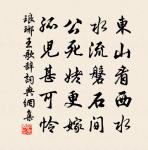 東山看西水
水流磐石間
公死姥更嫁
孤兒甚可憐
琅琊王歌辭詞典網集